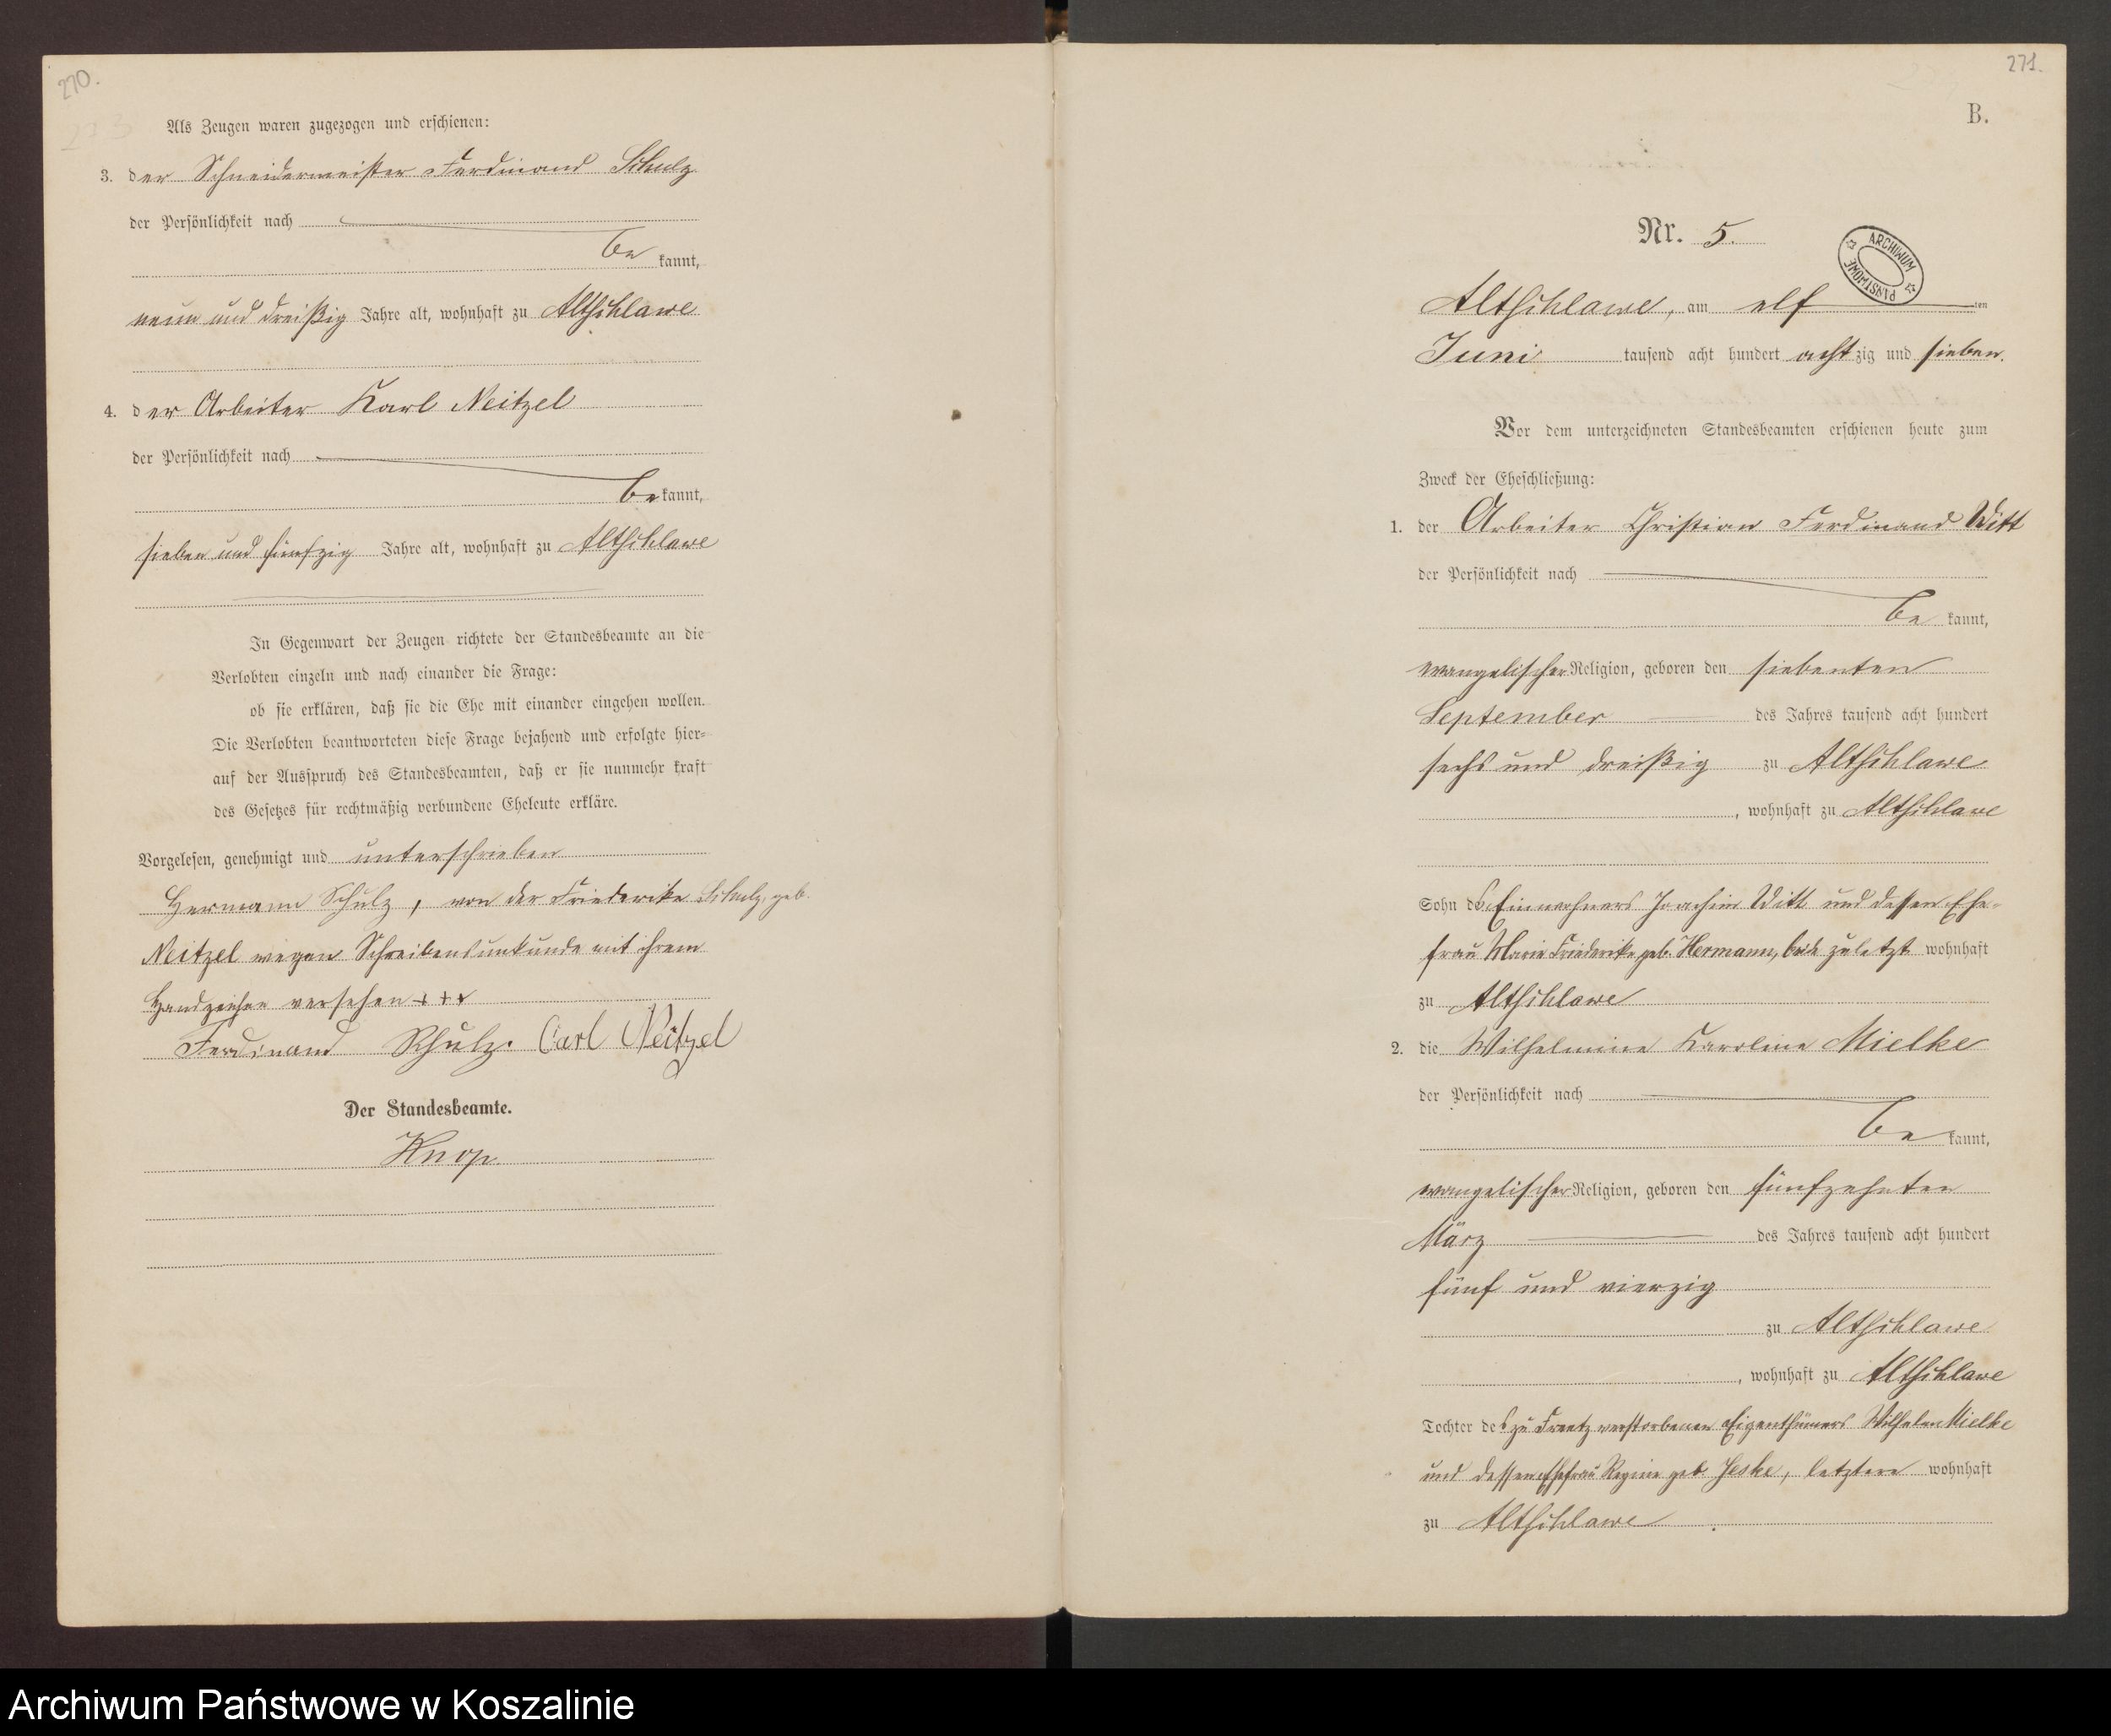 270.
Als Zeugen waren zugezogen und erschienen:
3. der Schneidermeister Ferdinand Schulz
der Persönlichkeit nach
be kannt,
neun und dreißig Jahre alt, wohnhaft zu Altschlawe
4. der Arbeiter Karl Neitzel
der Persönlichkeit nach
be kannt,
sieben und fünfzig Jahre alt, wohnhaft zu Altschlawe
In Gegenwart der Zeugen richtete der Standesbeamte an die
Verlobten einzeln und nach einander die Frage:
ob sie erklären, daß sie die Ehe mit einander eingehen wollen.
Die Verlobten beantworteten diese Frage bejahend und erfolgte hier-
auf der Ausspruch des Standesbeamten, daß er sie nunmehr kraft
des Gesetzes für rechtmäßig verbundene Eheleute erkläre.
Vorgelesen, genehmigt und unterschrieben
Hermann Schulz, von der Friederike Schulz, geb.
Neitzel wegen Schreibensunkunde mit ihrem
Handzeichen versehen +++
Ferdinand Schulz. Carl Neitzel
Der Standesbeamte.
Knop
271.
B.
Nr. 5.
ARCHIWUM PAŃSTWOWE
Altschlawe, am elf ten
Juni tausend acht hundert achtzig und sieben.
Vor dem unterzeichneten Standesbeamten erschienen heute zum
Zweck der Eheschließung:
1. der Arbeiter Christian Ferdinand Witt
der Persönlichkeit nach
be kannt,
evangelischer Religion, geboren den siebenten
September des Jahres tausend acht hundert
sechs und dreißig zu Altschlawe
, wohnhaft zu Altschlawe
Sohn des Einwohners Joachim Witt und dessen Ehe-
frau Marie Friederike geb. Hermann, beide zuletzt wohnhaft
zu Altschlawe
2. die Wilhelmine Karoline Mielke
der Persönlichkeit nach
be kannt,
evangelischer Religion, geboren den fünfzehnten
März des Jahres tausend acht hundert
fünf und vierzig
zu Altschlawe
, wohnhaft zu Altschlawe
Tochter des zu Freetz verstorbenen Eigenthümers Wilhelm Mielke
und dessen Ehefrau Regine geb. Jeske, letztere wohnhaft
zu Altschlawe
Archiwum Państwowe w Koszalinie